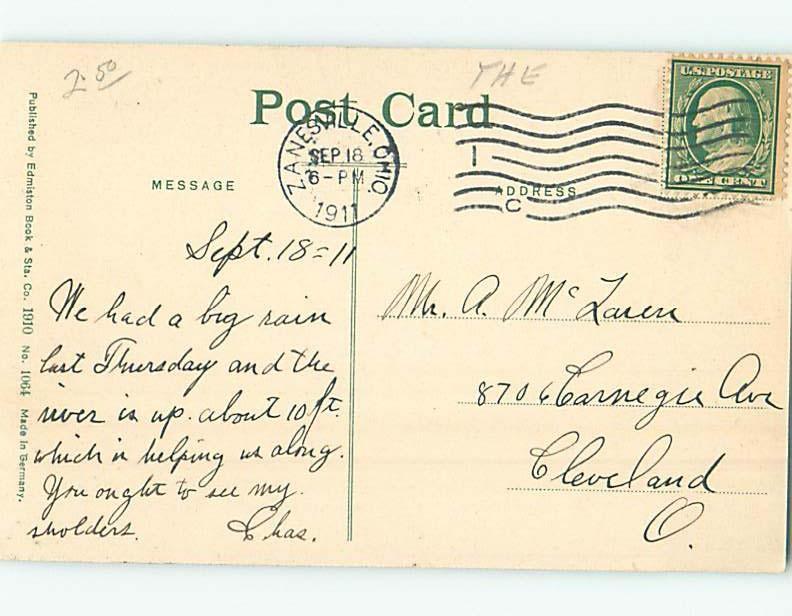 2.50
THE
Post Card
U.S. POSTAGE
ONE CENT
ZANESVILLE, OHIO.
SEP 18
6-PM
1911
1
C
MESSAGE
ADDRESS
Sept. 18=11
We had a big rain
last Thursday and the
river is up. about 10 ft.
which is helping us along.
You ought to see my
sholders. Chas.
Mr. A. McLaren
8706 Carnegie Ave
Cleveland
O.
Published by Edmiston Book & Sta. Co. 1910 No. 1064 Made in Germany.